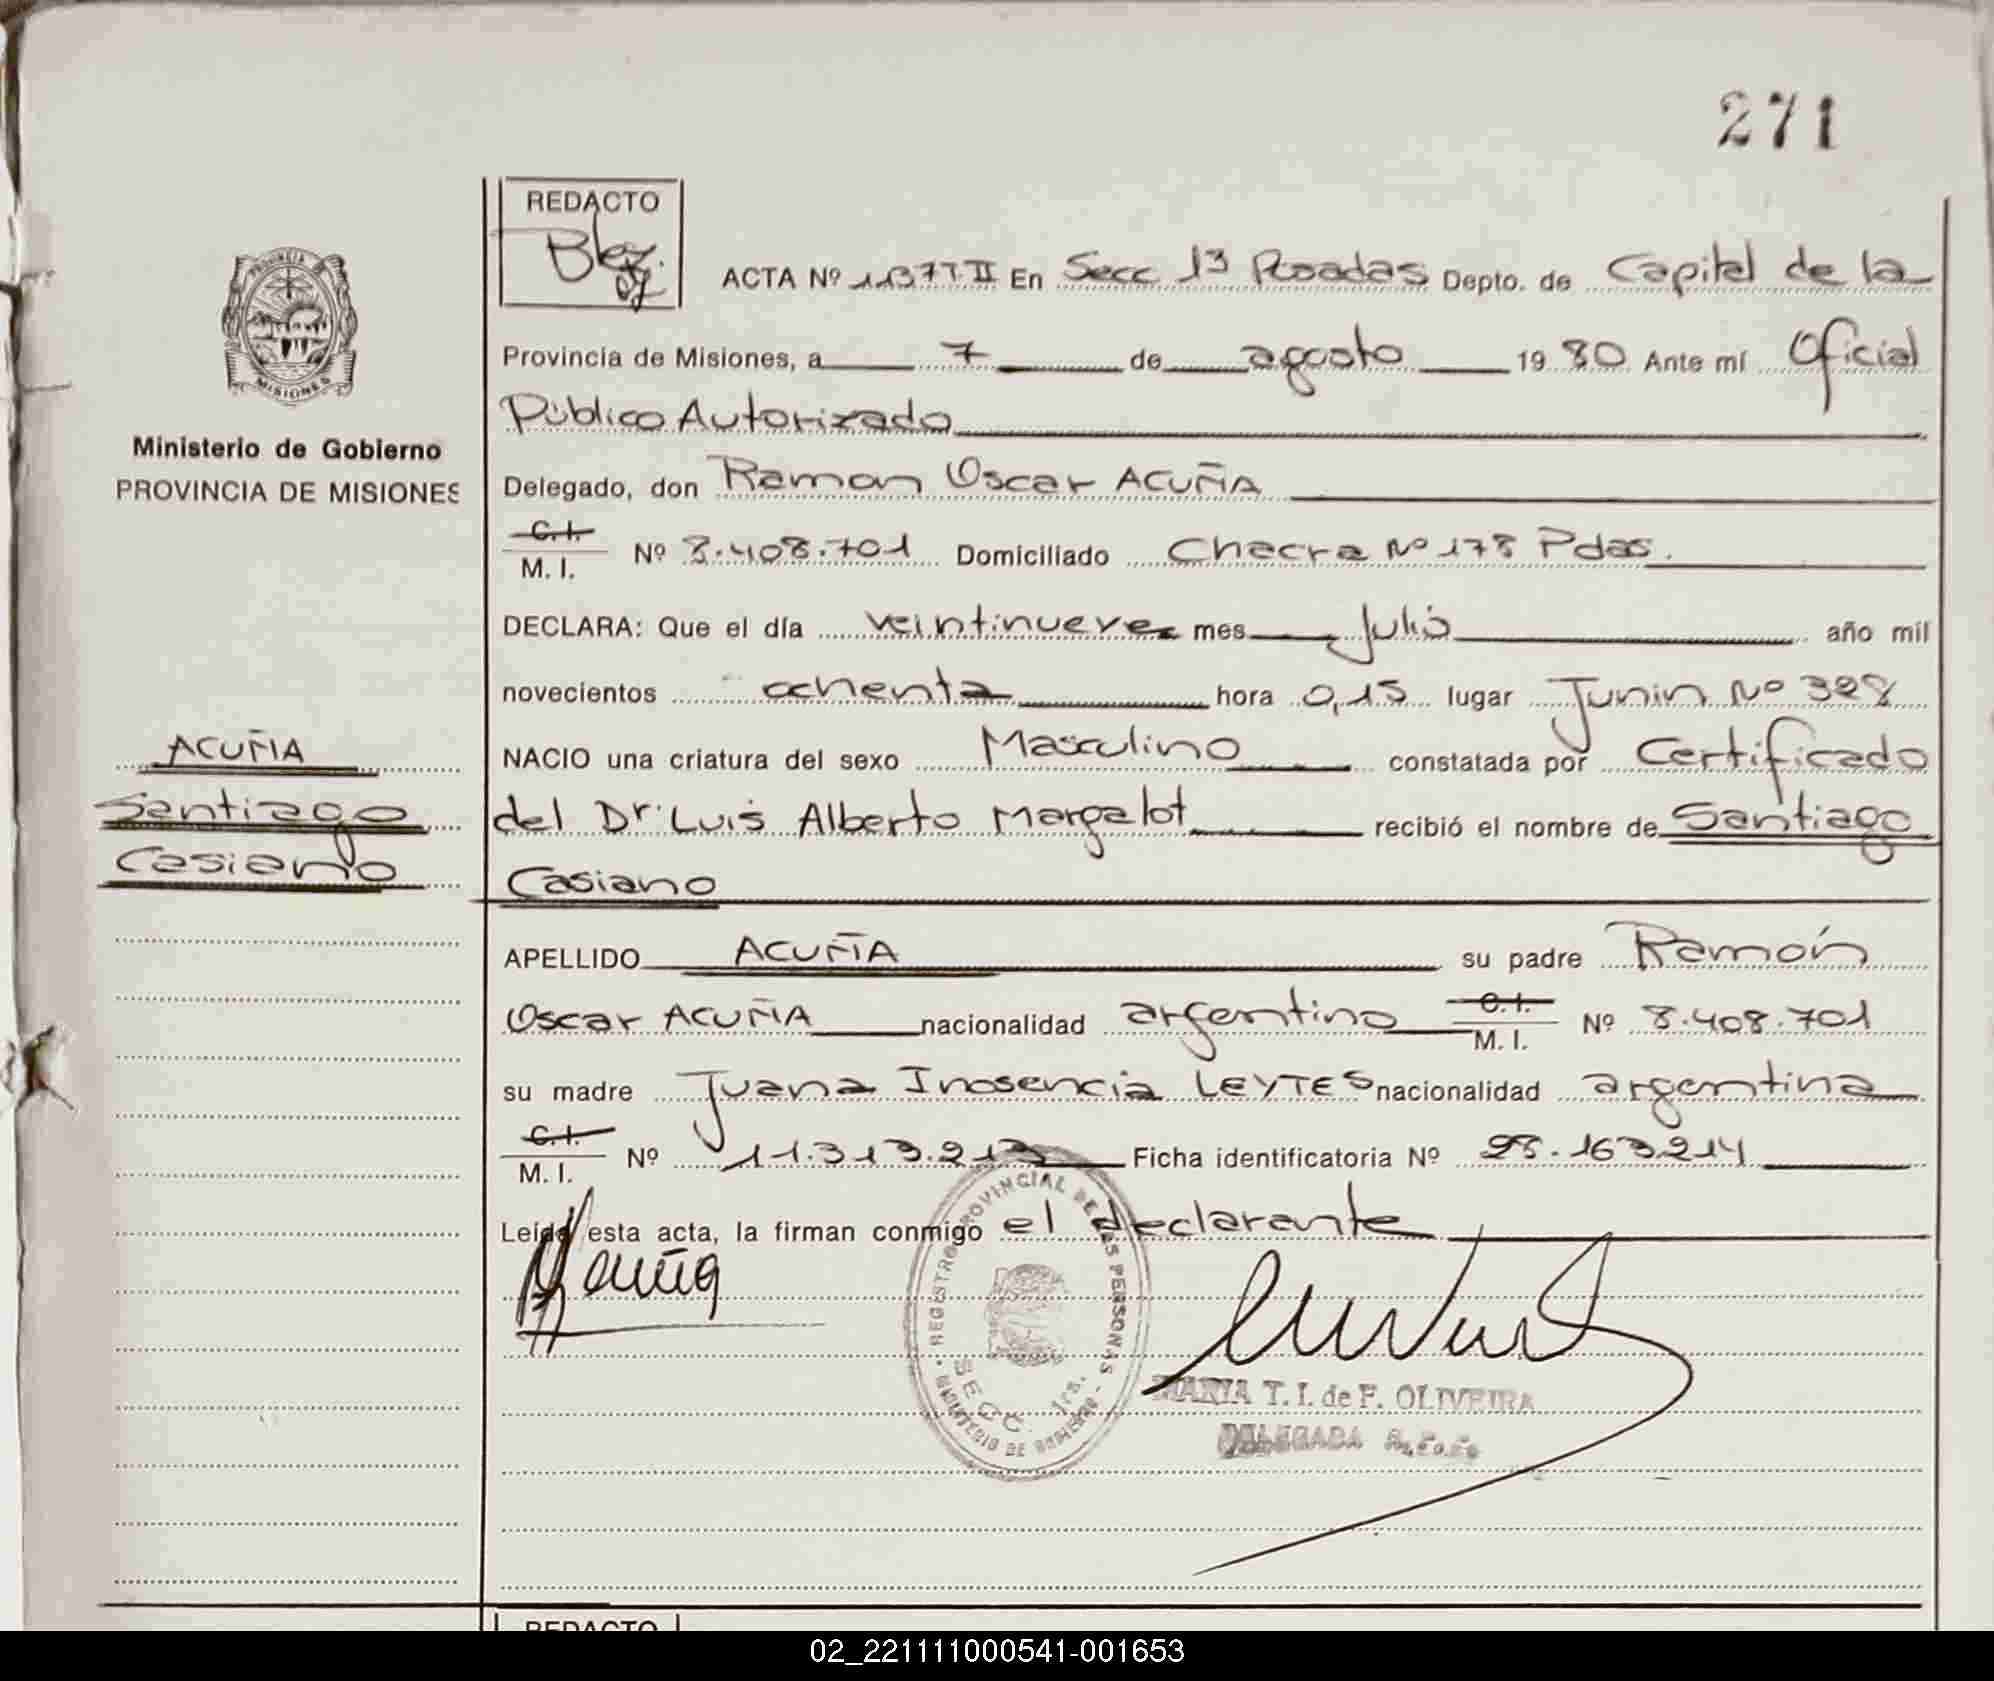 271
REDACTO
ACTA Nº 1137 T. II En Secc 1ª Posadas Depto. de Capital de la
PROVINCIA
MISIONES
Provincia de Misiones, a 7 de agosto 1980 Ante mí Oficial
Público Autorizado
Ministerio de Gobierno
PROVINCIA DE MISIONES
Delegado, don Ramon Oscar ACUÑA
C.I.
M. I. Nº 8.408.701 Domiciliado Chacra Nº 178 Pdas.
DECLARA: Que el día veintinueve mes Julio año mil
novecientos ochenta hora 0,15 lugar Junin Nº 328
ACUÑA
Santiago
Casiano
NACIO una criatura del sexo Masculino constatada por Certificado
del Dr. Luis Alberto Margalot recibió el nombre de Santiago
Casiano
APELLIDO ACUÑA su padre Ramón
Oscar ACUÑA nacionalidad argentino C.I. M. I. Nº 8.408.701
su madre Juana Inosencia LEYTES nacionalidad argentina
C.I.
M. I. Nº 11.313.213 Ficha identificatoria Nº 28.163.214
Leída esta acta, la firman conmigo el declarante
Acuña
REGISTRO PROVINCIAL DE LAS PERSONAS
SECC. 1ra.
MINISTERIO DE GOBIERNO
MARIA T. I. de F. OLIVEIRA
DELEGADA
REDACTO
02_221111000541-001653